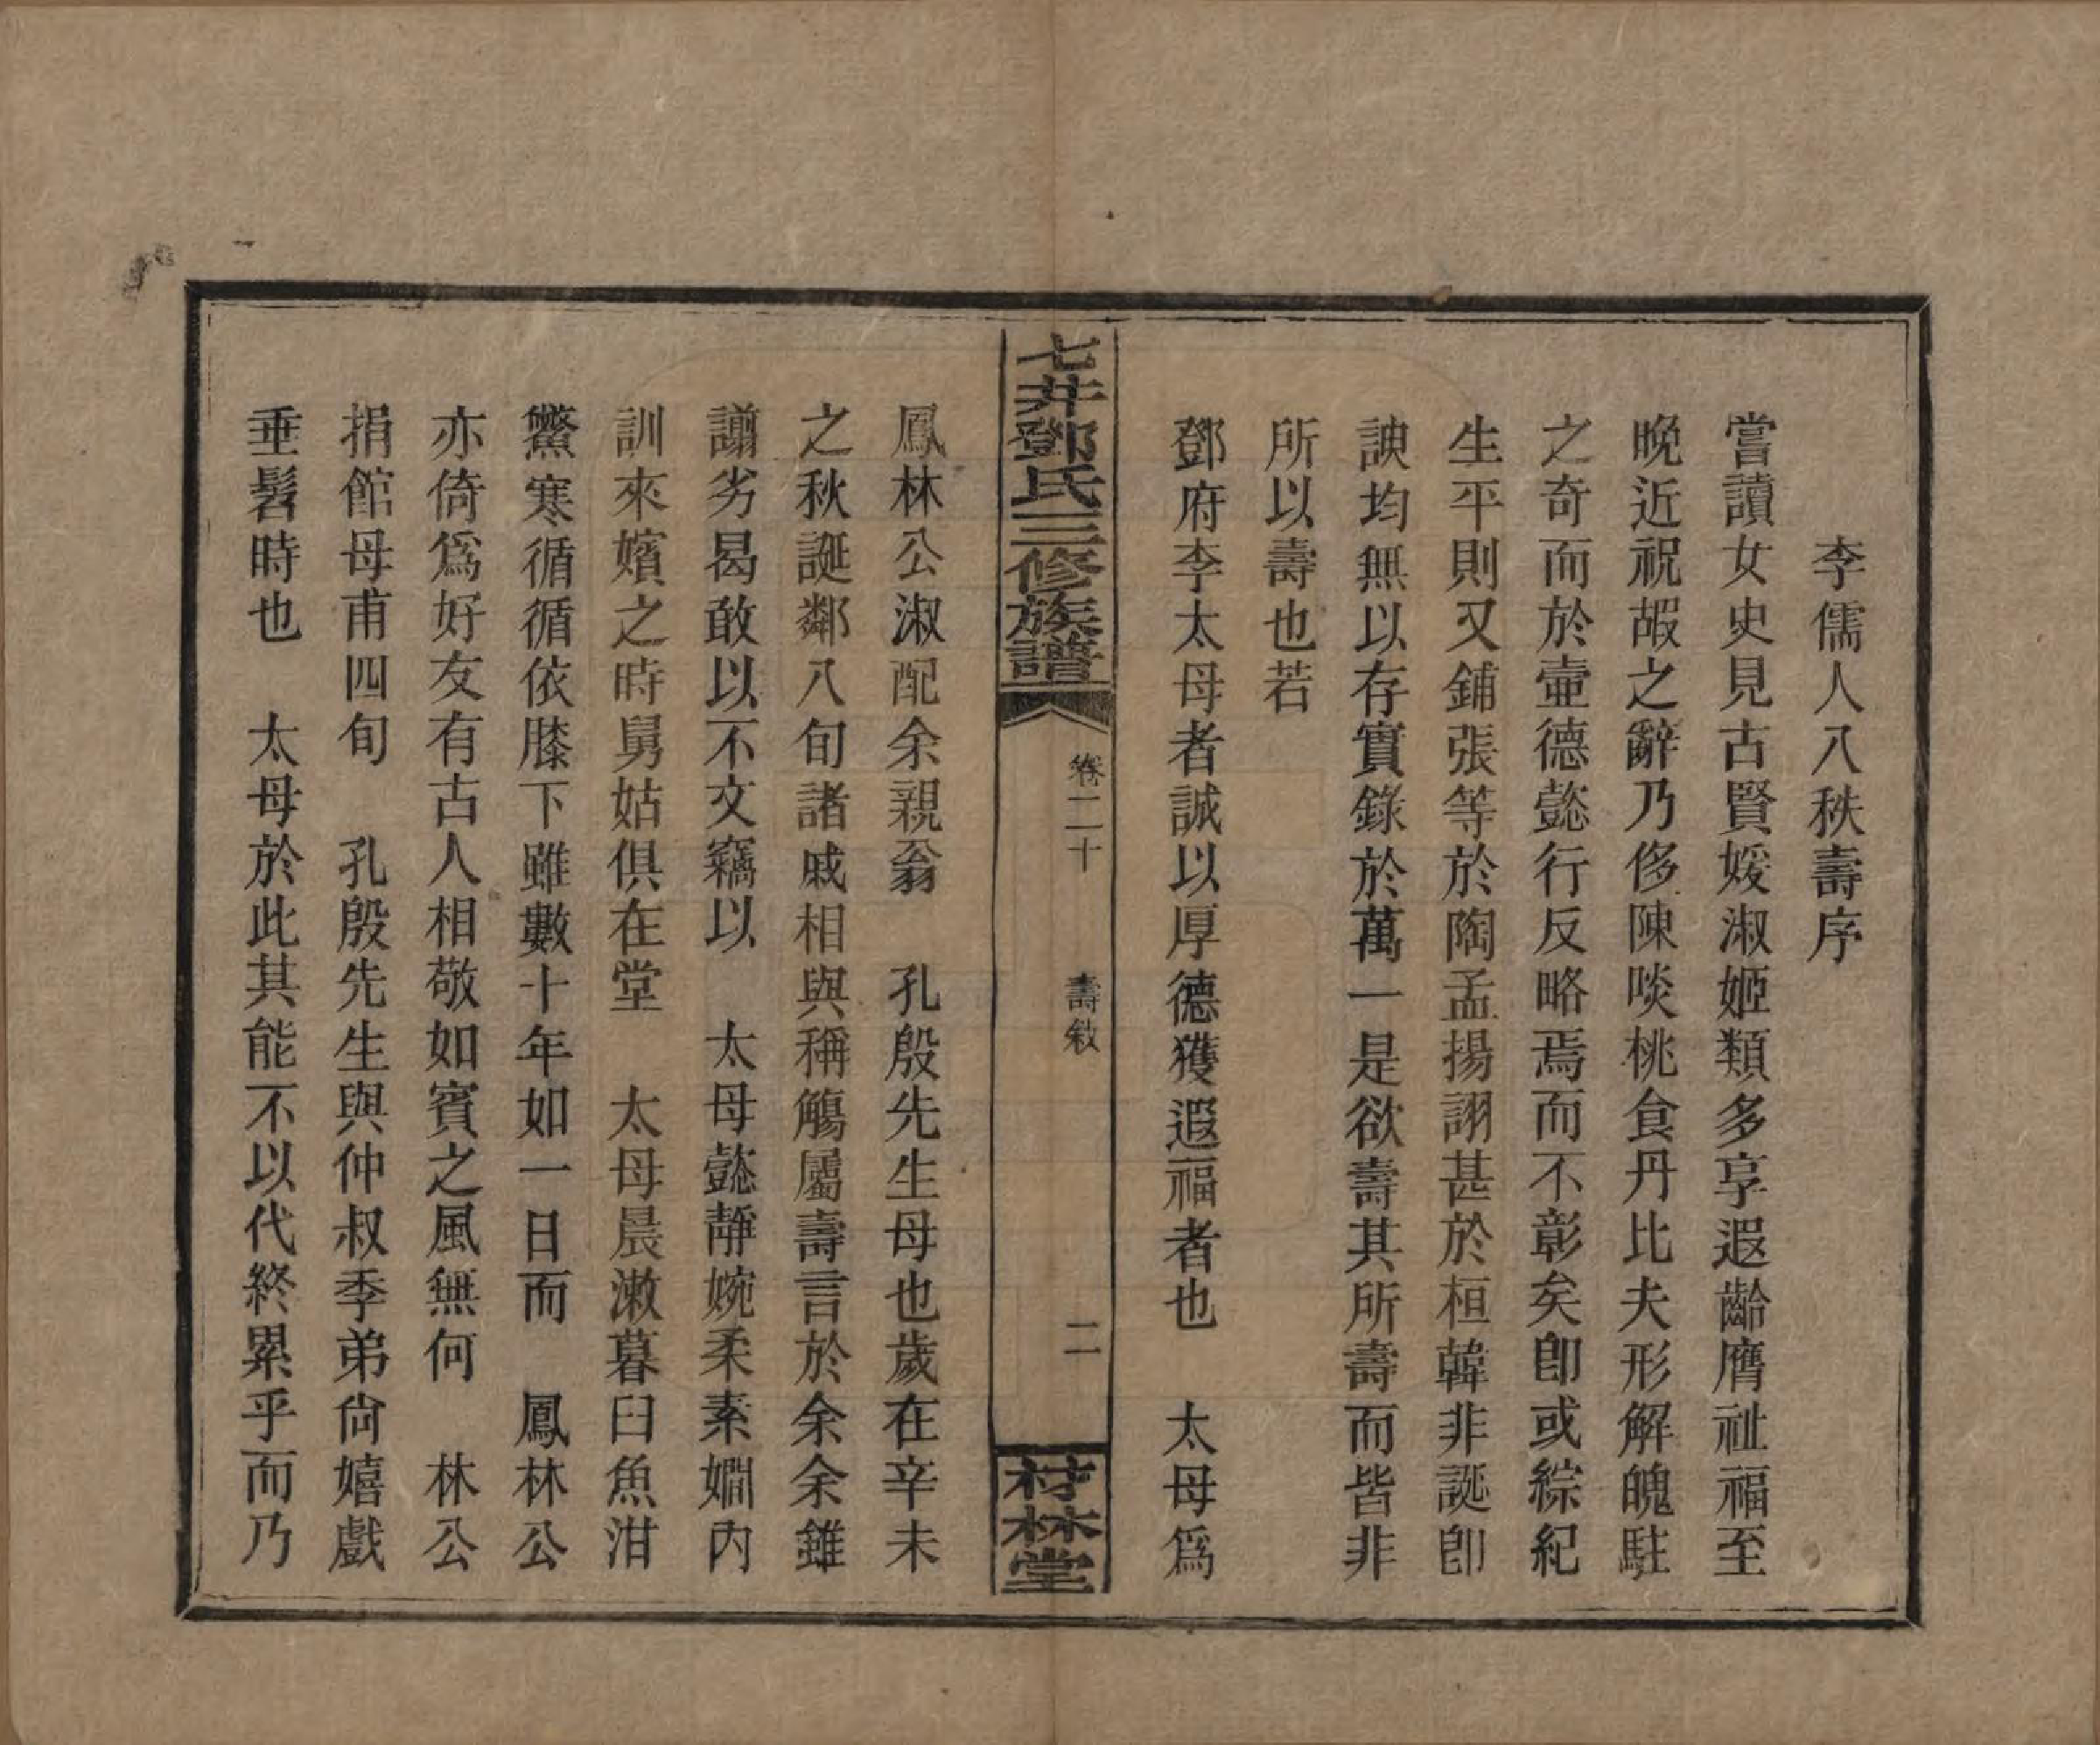 李儒人八秩壽序
嘗讀女史見古賢媛淑姬類多享遐齡膺祉福至
晚近祝嘏之辭乃侈陳啖桃食丹比夫形解魄駐
之奇而於壼德懿行反略焉而不彰矣卽或綜紀
生平則又鋪張等於陶孟揚詡甚於桓韓非誕卽
諛均無以存實錄於萬一是欲壽其所壽而皆非
所以壽也若
鄧府李太母者誠以厚德獲遐福者也 太母爲
七井鄧氏三修族譜 卷二十 壽敍 二 村林堂
鳳林公淑配余親翁 孔殷先生母也歲在辛未
之秋誕鄰八旬諸戚相與稱觴屬壽言於余余雖
譾劣曷敢以不文竊以 太母懿靜婉柔素嫺內
訓來嬪之時舅姑俱在堂 太母晨漱暮臼魚泔
鱉寒循循依膝下雖數十年如一日而 鳳林公
亦倚爲好友有古人相敬如賓之風無何 林公
捐館母甫四旬 孔殷先生與仲叔季弟尙嬉戲
垂髫時也 太母於此其能不以代終累乎而乃